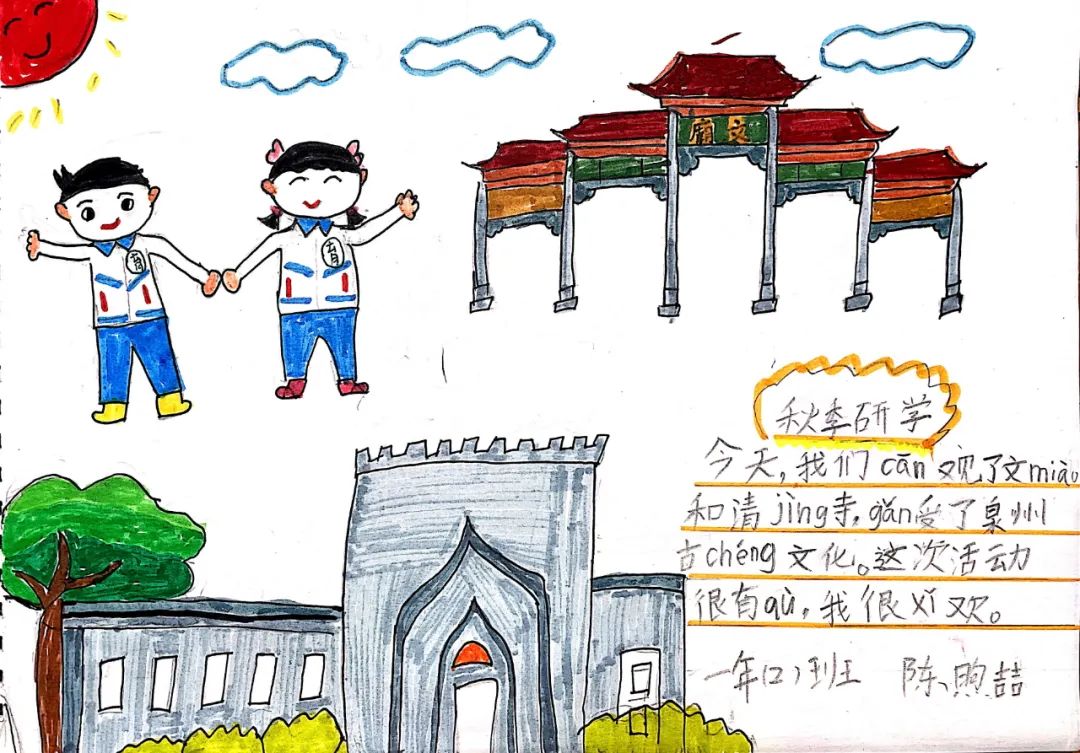 文廟
育
育
秋季研学
今天,我们cān观了文miào
和清jìng寺,gǎn受了泉州
古chéng文化。这次活动
很有qù,我很xǐ欢。
一年(2)班 陈煦喆